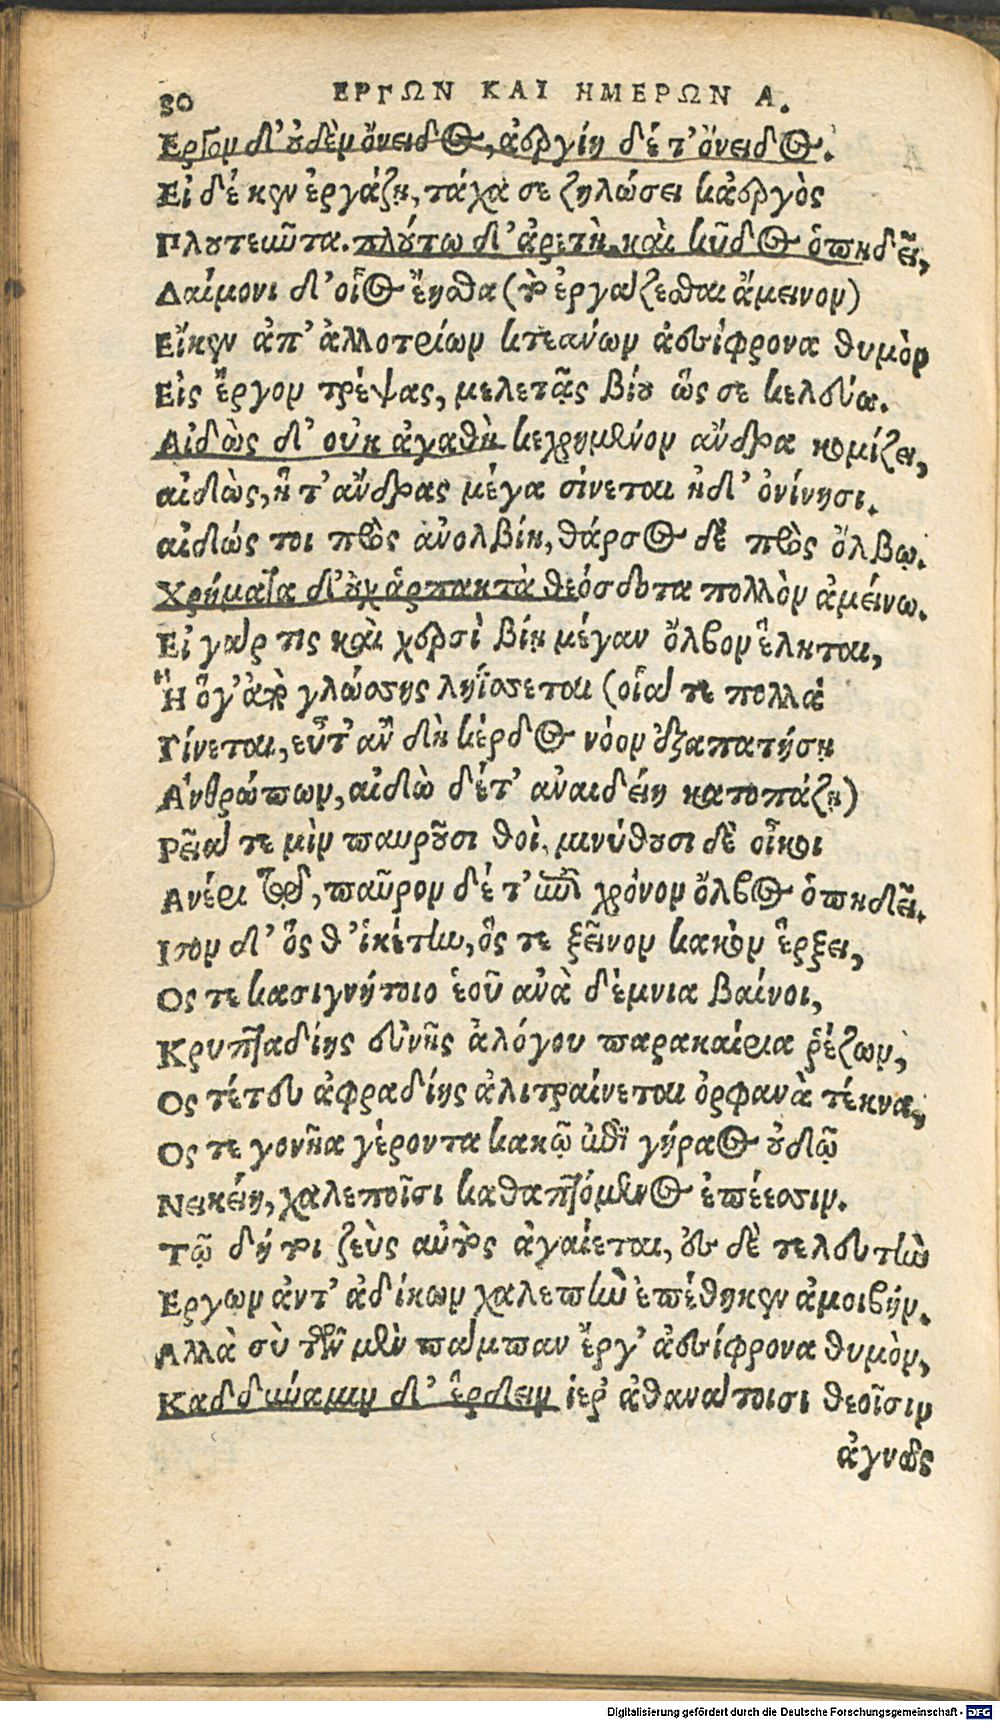 30
ΕΡΓΩΝ ΚΑΙ ΗΜΕΡΩΝ Α.
Ἔργον δ' οὐδὲν ὄνειδος, ἀεργίη δέ τ' ὄνειδος.
Εἰ δέ κεν ἐργάζῃ, τάχα σε ζηλώσει κἀεργὸς
Πλουτεῦντα. πλούτῳ δ' ἀρετὴ καὶ κῦδος ὀπηδεῖ,
Δαίμονι δ' οἷος ἔησθα (τὸ ἐργάζεσθαι ἄμεινον)
Εἴκεν ἀπ' ἀλλοτρίων κτεάνων ἀεσίφρονα θυμὸν
Εἰς ἔργον τρέψας, μελετᾷς βίου ὥς σε κελεύω.
Αἰδὼς δ' οὐκ ἀγαθὴ κεχρημένον ἄνδρα κομίζει,
αἰδὼς, ἥ τ' ἄνδρας μέγα σίνεται ἠδ' ὀνίνησι.
αἰδώς τοι πρὸς ἀνολβίη, θάρσος δὲ πρὸς ὄλβῳ.
Χρήματα δ' οὐχ ἁρπακτὰ θεόσδοτα πολλὸν ἀμείνω.
Εἰ γάρ τις καὶ χερσὶ βίῃ μέγαν ὄλβον ἕληται,
Ἢ ὅγ' ἀπὸ γλώσσης ληΐσσεται (οἷά τε πολλὰ
Γίνεται, εὖτ' ἂν δὴ κέρδος νόον ἐξαπατήσῃ
Ἀνθρώπων, αἰδὼ δέ τ' ἀναιδείη κατοπάζῃ)
Ῥεῖά τε μὶν παυροῦσι θοὶ, μινύθουσι δὲ οἶκοι
Ἀνέρι τῷδ, παῦρον δέ τ' ἐπὶ χρόνον ὄλβος ὀπηδεῖ.
Ἴσον δ' ὅς θ' ἱκέτην, ὅς τε ξεῖνον κακὸν ἔρξει,
Ος τε κασιγνήτοιο ἑοῦ ἀνὰ δέμνια βαίνοι,
Κρυπταδίης εὐνῆς ἀλόγου παρακαίρια ῥέζων,
Ος τέτευ ἀφραδίης ἀλιτραίνεται ὀρφανὰ τέκνα,
Ος τε γονῆα γέροντα κακῷ ἐπὶ γήραος οὐδῷ
Νεικείη, χαλεποῖσι καθαπτόμενος ἐπέεσσιν.
Τῷ δή τοι ζεὺς αὐτὸς ἀγαίεται, ἐς δὲ τελευτὴν
Εργων ἀντ' ἀδίκων χαλεπὴν ἐπέθηκεν ἀμοιβήν.
Αλλὰ σὺ τῶν μὲν πάμπαν ἔεργ' ἀεσίφρονα θυμὸν,
Καδδύναμιν δ' ἔρδειν ἱερ' ἀθανάτοισι θεοῖσιν
ἁγνῶς
Digitalisierung gefördert durch die Deutsche Forschungsgemeinschaft - DFG